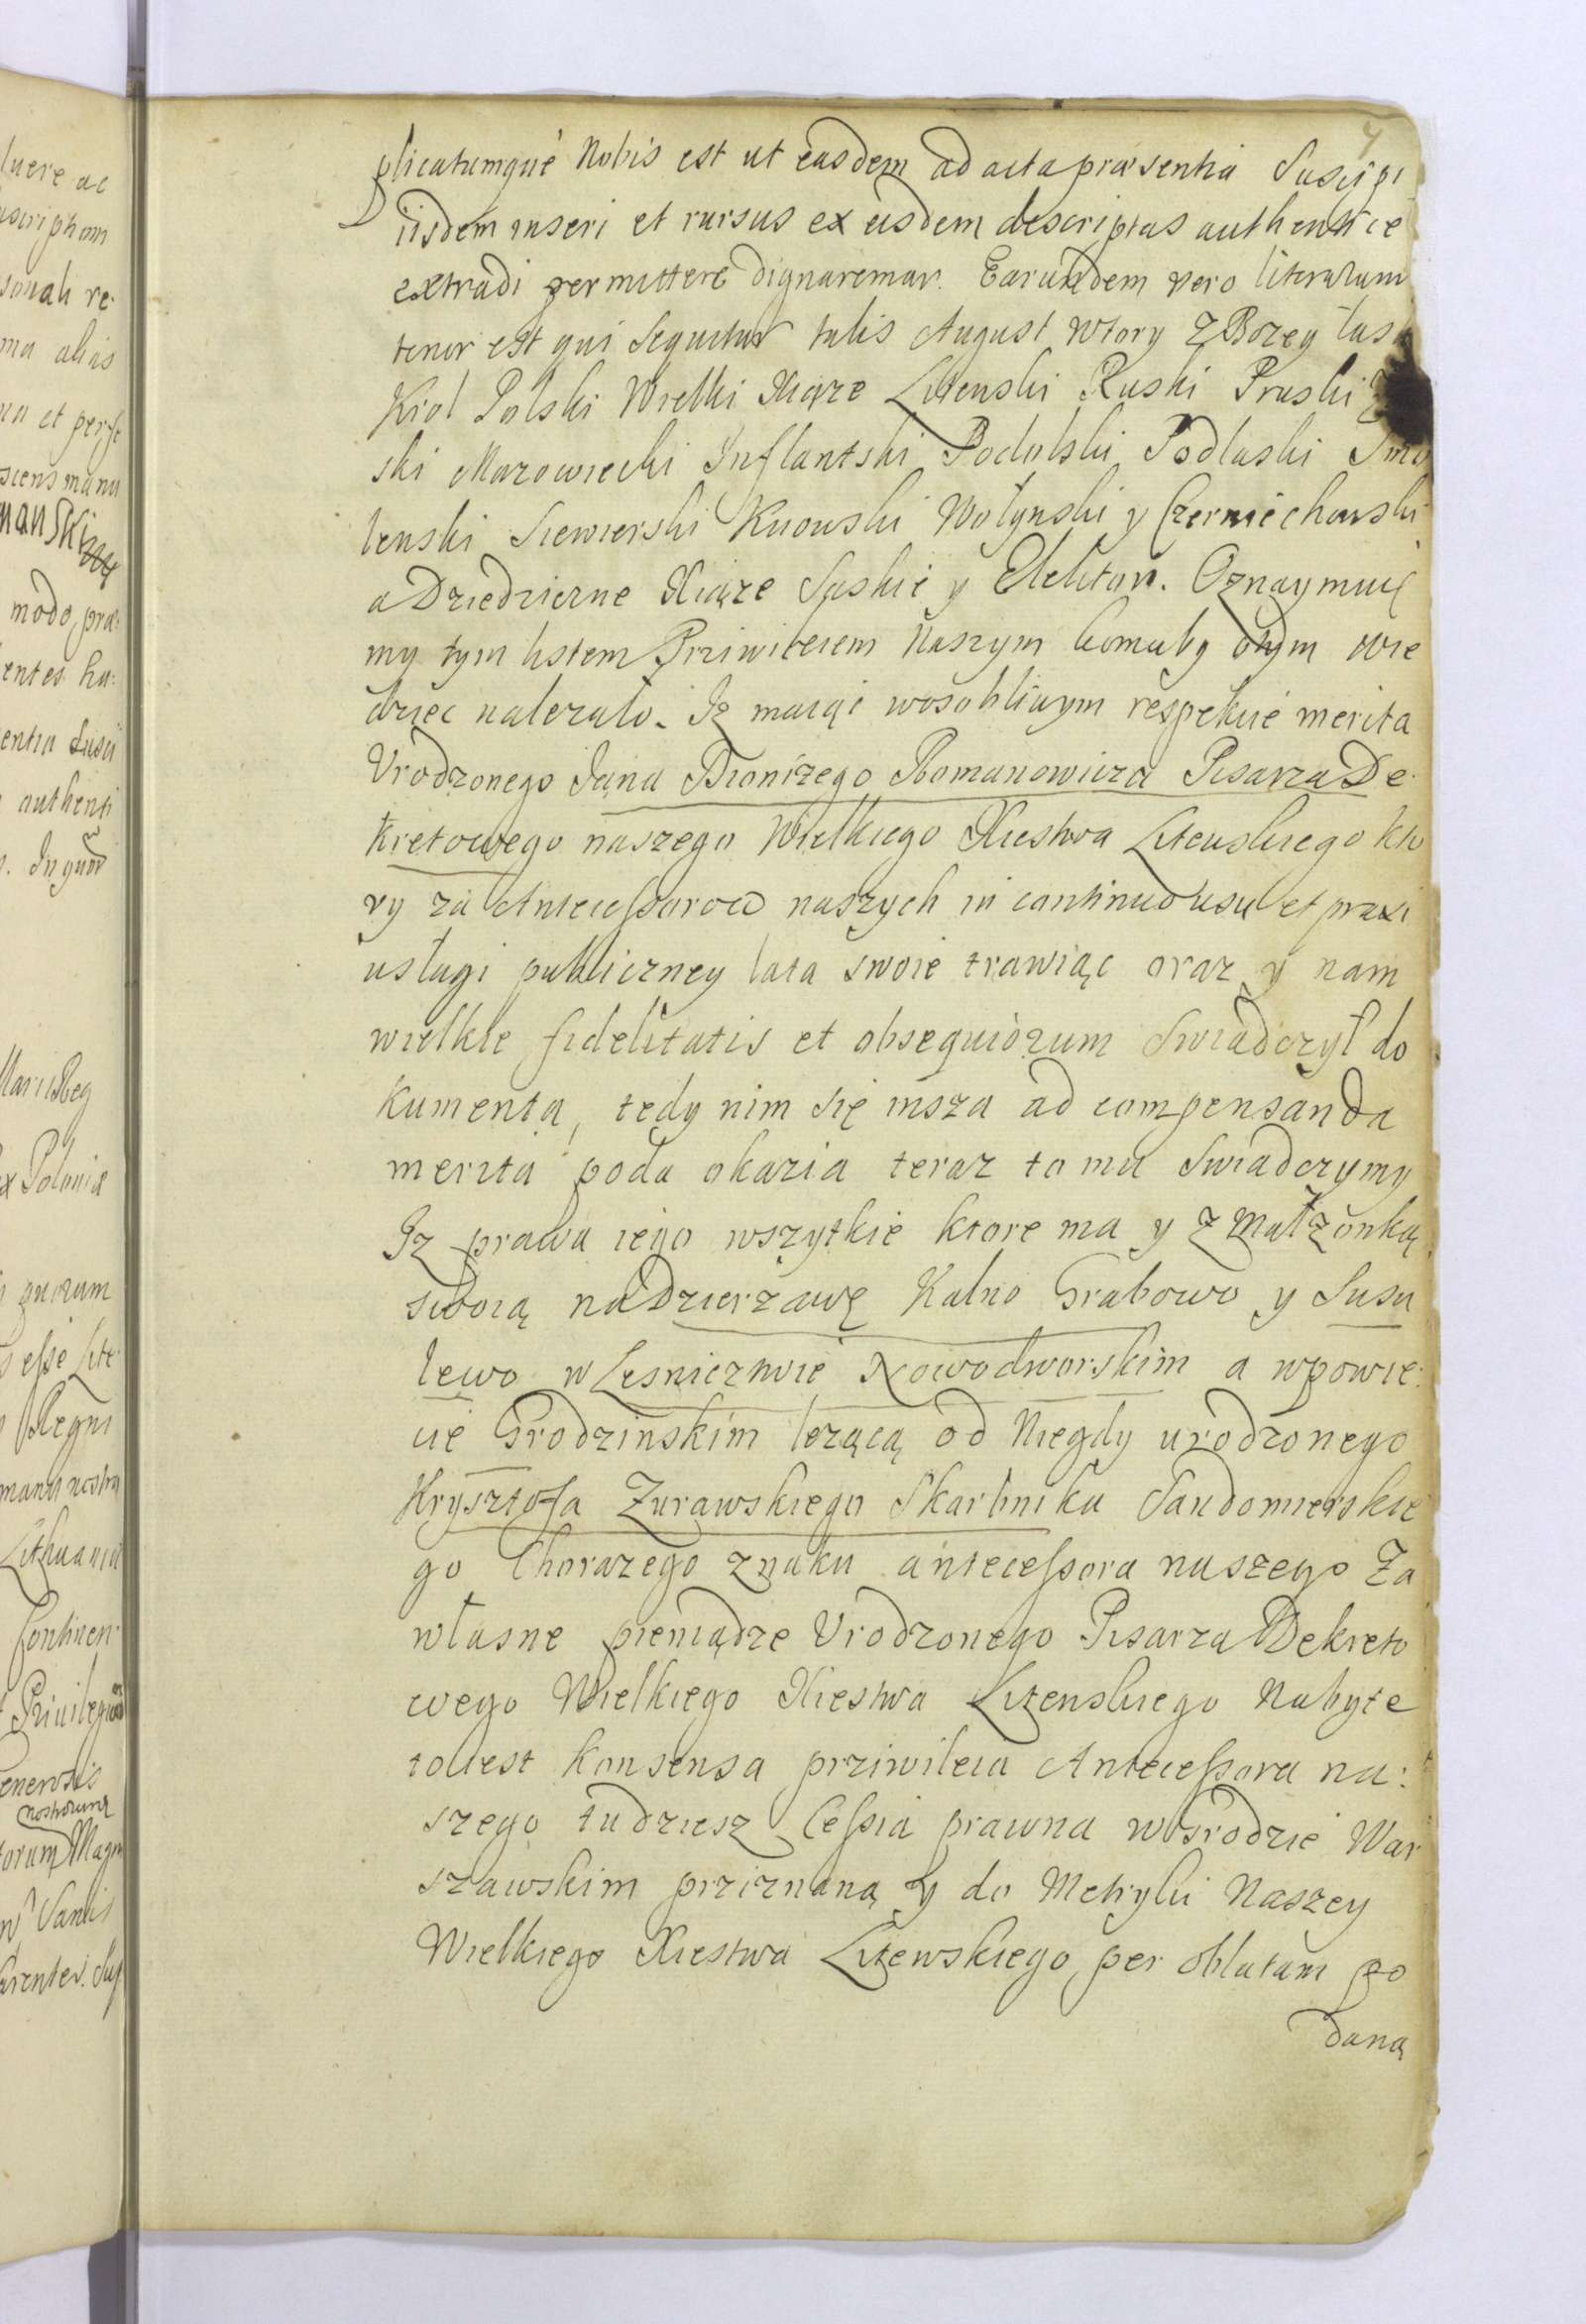 7
plicatumque Nobis est ut easdem ad acta præsentia Suscipi
iisdem inseri et rursus ex eisdem descriptas authentice
extradi permittere dignaremur. Earundem vero literarum
tenor est qui Sequitur talis August wtory z Bozey łas
Krol Polski Wielki Xiąze Litewski Ruski Pruski
ski Mazowiecki Inflantski Podolski Podlaski Smo
lenski Siewierski Kiiowski Wołynski y Czerniechowski
a Dziedziczne Xiąze Saskie y Elektor. Oznaymuię
my tym listem Prziwileiem Naszym komuby otym wie
dziec nalezało. Iz maiąc wosobliwym respekcie merita
Urodzonego Jana Dionizego Romanowicza Pisarza De
kretowego naszego Wielkiego Xiestwa Litewskiego kto
ry za Antecessorow naszych in continuo usu et praxi
usługi publiczney lata swoie trawiąc oraz y nam
wielkie fidelitatis et obsequiorum Swiadczył do
kumenta, tedy nim się insza ad compensanda
merita poda okazia teraz to mu Swiadczymy
Iz prawa iego wszytkie ktore ma y z Małzonką
swoią na Dzierzawę Kalno Grabowo y Susu
lewo w Lesnictwie Nowodworskim a wpowie
cie Grodzinskim lezącą od Niegdy urodzonego
Krysztofa Zurawskiego Skarbnika Sandomierskie
go Chorazego znaku antecessora naszego Za
własne pieniądze Urodzonego Pisarza Dekreto
wego Wielkiego Xiestwa Litewskiego Nabyte
toiest konsensa prziwileia Antecessora na:
szego tudziesz Cessia prawna w Grodzie War
szawskim prziznaną y do Metryki Naszey
Wielkiego Xiestwa Litewskiego per oblatam po
daną